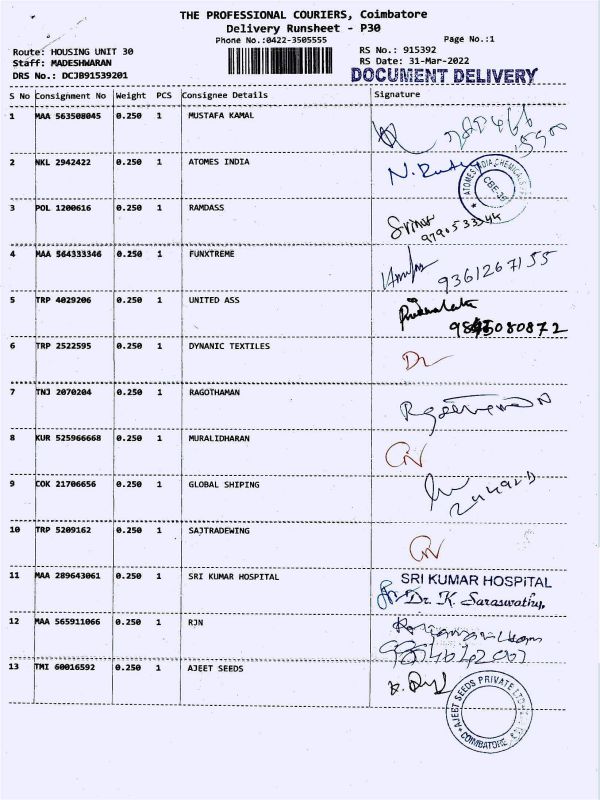 THE PROFESSIONAL COURIERS, Coimbatore
Delivery Runsheet - P30
Phone No.:0422-3505555 Page No.:1
Route: HOUSING UNIT 30 RS No.: 915392
Staff: MADESHWARAN RS Date: 31-Mar-2022
DRS No.: DCJB91539201 DOCUMENT DELIVERY
S No Consignment No Weight PCS Consignee Details Signature
1 MAA 563508045 0.250 1 MUSTAFA KAMAL
2 NKL 2942422 0.250 1 ATOMES INDIA
ATOMES INDIA CHEMICALS
CBE-38
3 POL 1200616 0.250 1 RAMDASS
9790533344
4 MAA 564333346 0.250 1 FUNXTREME
9361267155
5 TRP 4029206 0.250 1 UNITED ASS
6 TRP 2522595 0.250 1 DYNANIC TEXTILES
7 TNJ 2070204 0.250 1 RAGOTHAMAN
8 KUR 525966668 0.250 1 MURALIDHARAN
9 COK 21706656 0.250 1 GLOBAL SHIPING
10 TRP 5209162 0.250 1 SAJTRADEWING
11 MAA 289643061 0.250 1 SRI KUMAR HOSPITAL SRI KUMAR HOSPITAL
Dr. K. Saraswathy,
12 MAA 565911066 0.250 1 RJN
13 TMI 60016592 0.250 1 AJEET SEEDS
AJEET SEEDS PRIVATE LTD
COIMBATORE